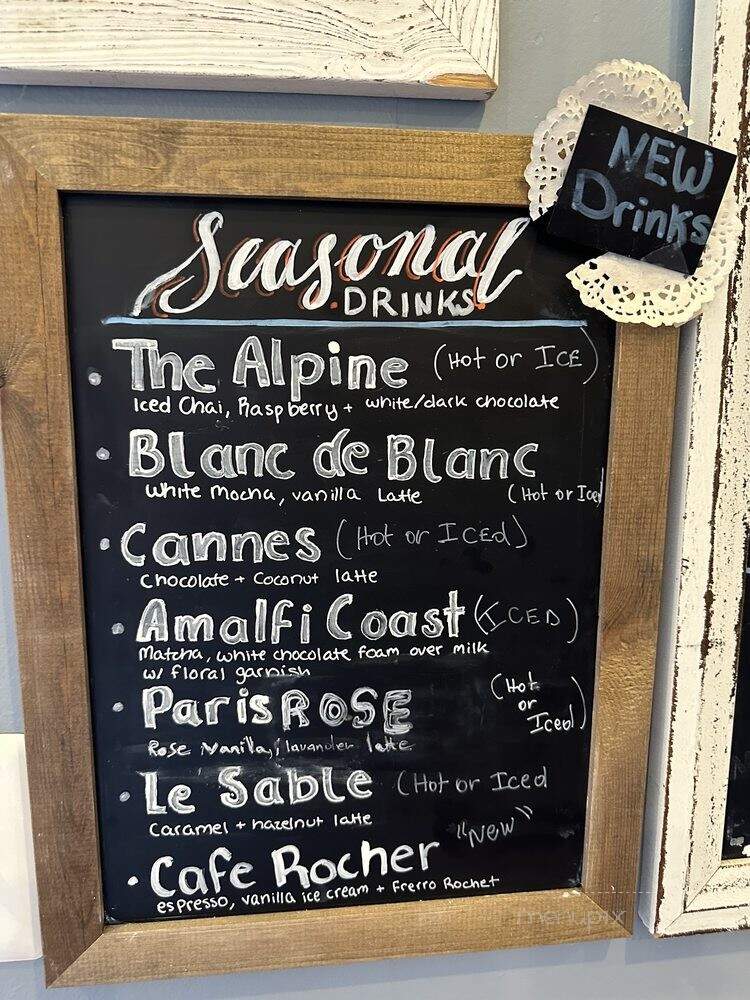 NEW
Drinks
Seasonal
DRINKS
The Alpine (Hot or ICE)
Iced Chai, Raspberry + white/dark chocolate
Blanc de Blanc
white mocha, vanilla Latte (Hot or Iced
Cannes (Hot or ICEd)
Chocolate + Coconut latte
Amalfi Coast (ICED)
Matcha, white chocolate foam over milk
w/ floral garnish
Paris ROSE (Hot
or
Iced)
Rose Vanilla, lavander latte
Le Sable (Hot or Iced
Caramel + hazelnut latte
"New"
Cafe Rocher
espresso, vanilla ice cream + Frerro Rochet
menupix